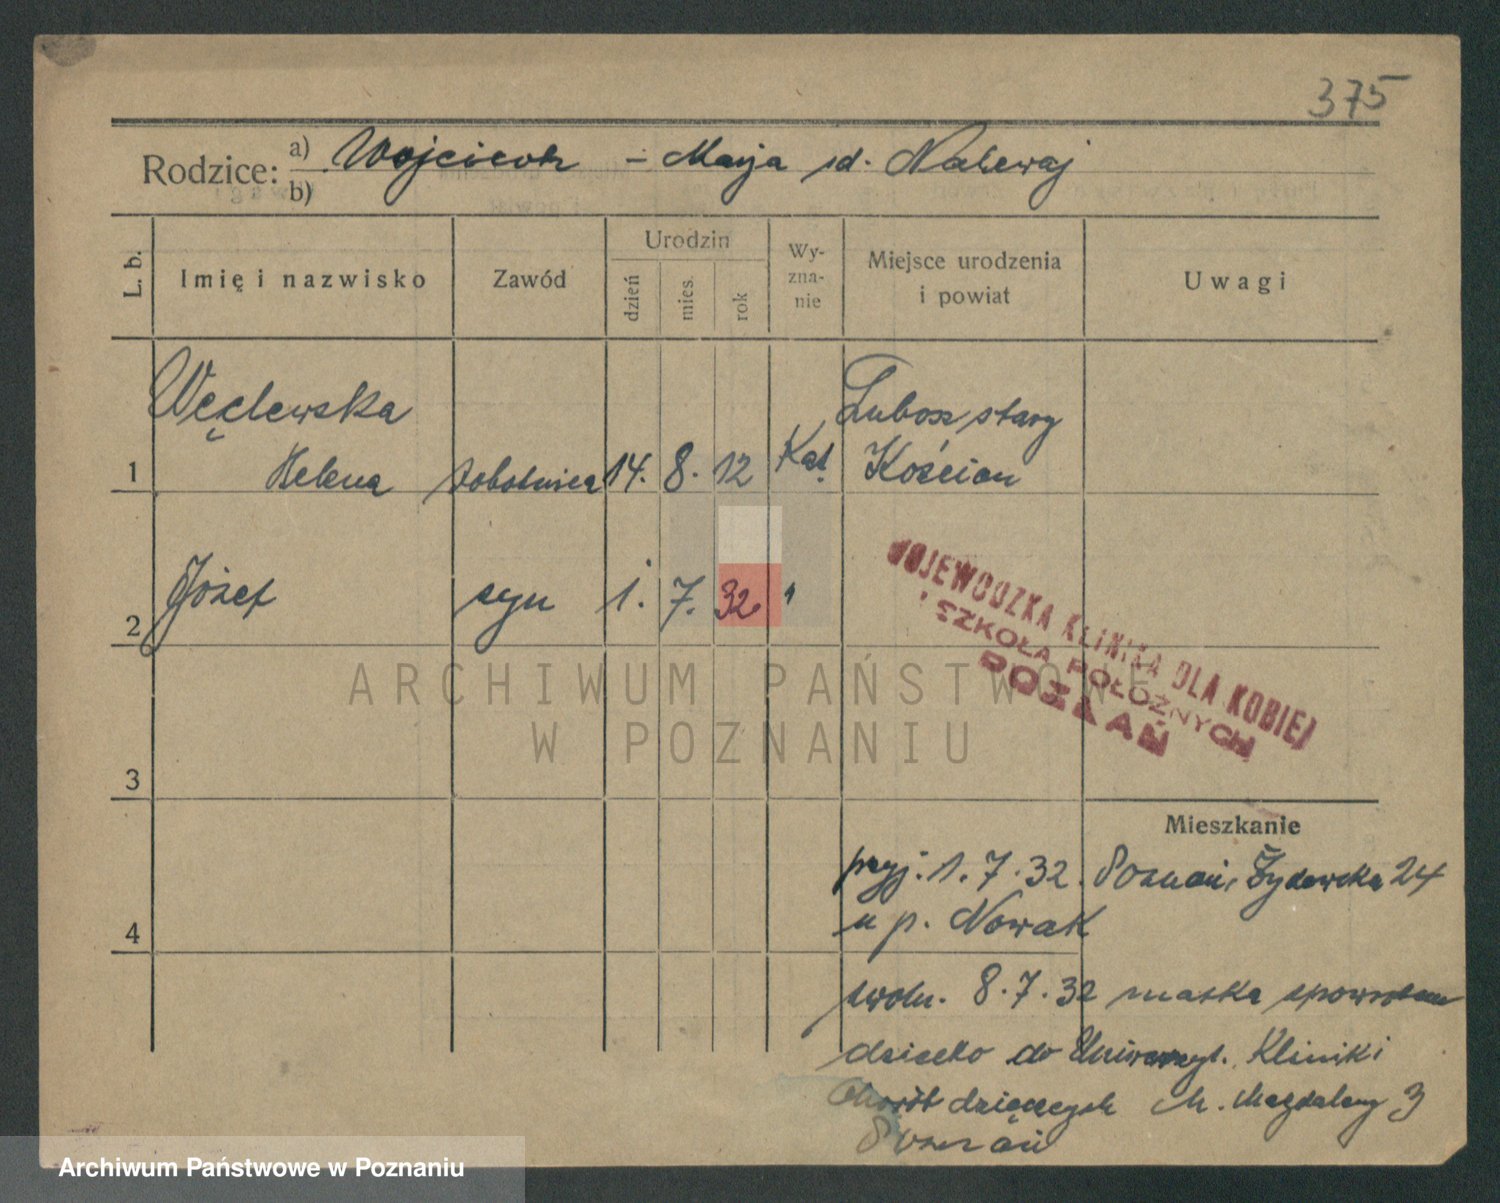 375
Rodzice: a) Wojciech – Marja zd. Nalewaj
b)
L. b.
Imię i nazwisko
Zawód
Urodzin
dzień
mies.
rok
Wy-
zna-
nie
Miejsce urodzenia
i powiat
Uwagi
Węclewska Lubosz stary
1 Helena robotnica 14. 8. 12 Kat. Kościan
2 Józef syn 1. 7. 32. "
WOJEWÓDZKA KLINIKA DLA KOBIET
I SZKOŁA POŁOŻNYCH
POZNAŃ
ARCHIWUM PAŃSTWOWE
W POZNANIU
3
Mieszkanie
przyj. 1. 7. 32. Poznań, Żydowska 24
4 u p. Nowak
zwoln. 8. 7. 32 matka spowrotem
dziecko do Uniwersyt. Kliniki
Chorób dziecięcych M. Magdaleny 3
Poznań
Archiwum Państwowe w Poznaniu